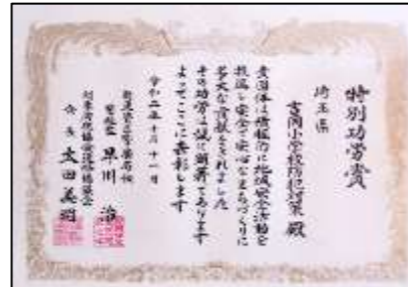 特別功労賞
埼玉県
吉岡小学校防犯対策 殿
貴団体は積極的に地域安全活動を
推進し安全で安心なまちづくりに
多大な貢献をされました
その功労は誠に顕著であります
よってここに表彰します
令和二年十月十一日
関東管区警察局長
警視監 早川 治
関東防犯協会連絡協議会
会長 太田 美明